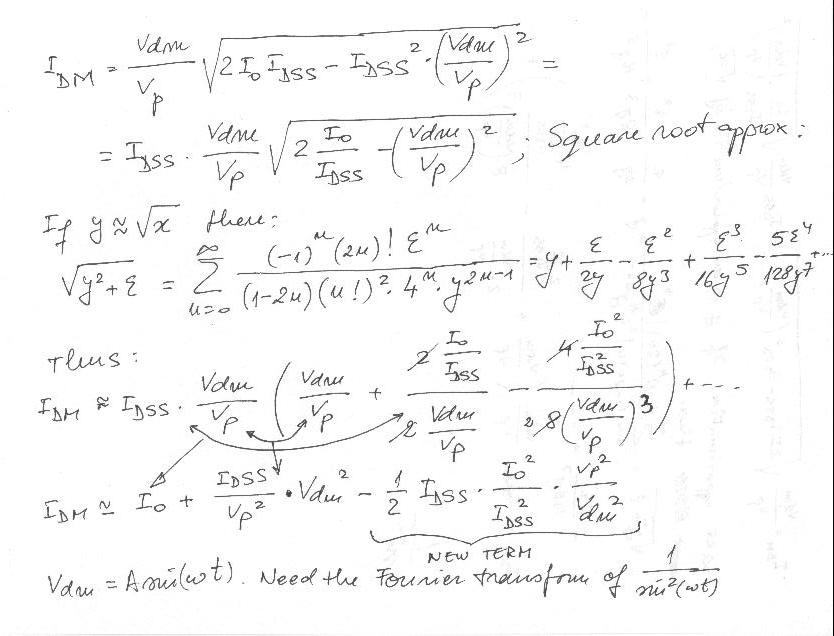 I_DM = Vdm/Vp √(2 I₀ I_DSS − I_DSS² · (Vdm/Vp)²) =
= I_DSS · Vdm/Vp √(2 I₀/I_DSS − (Vdm/Vp)²) ; Square root approx :
If y ≈ √x then:
√(y² + ε) = ∑_{n=0}^{∞} (−1)ⁿ (2n)! εⁿ / ((1−2n)(n!)² · 4ⁿ · y²ⁿ⁻¹) = y + ε/2y − ε²/8y³ + ε³/16y⁵ − 5ε⁴/128y⁷ + ...
Thus :
I_DM ≈ I_DSS · Vdm/Vp (Vdm/Vp + 2 I₀/I_DSS / 2 Vdm/Vp − 4 I₀²/I_DSS² / 2 8 (Vdm/Vp)³) + - - -
I_DM ≃ I₀ + I_DSS/Vp² · Vdm² − 1/2 I_DSS · I₀²/I_DSS² · Vp²/Vdm²
NEW TERM
Vdm = A sin(ωt). Need the Fourier transform of 1/sin²(ωt)